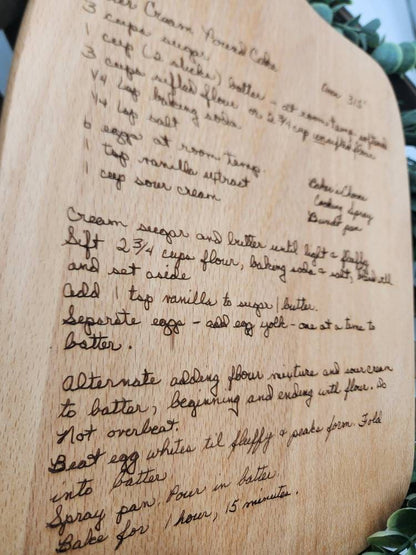 Cream Pound Cake
3 cups sugar
Oven 315°
1 cup (2 sticks) butter - at room temp. softened
3 cups sifted flour or 2 3/4 cup unsifted flour
1/4 tsp baking soda
1/4 tsp salt
6 eggs at room temp.
1 tsp vanilla extract
1 cup sour cream
Baker's Choice
Cooking Spray
Bundt pan
Cream sugar and butter until light & fluffy
Sift 2 3/4 cups flour, baking soda & salt, blend well
and set aside
Add 1 tsp vanilla to sugar/butter.
Separate eggs - add egg yolk - one at a time to
batter.
Alternate adding flour mixture and sour cream
to batter, beginning and ending with flour. Do
not overbeat.
Beat egg whites til fluffy & peaks form. Fold
into batter
Spray pan. Pour in batter.
Bake for 1 hour, 15 minutes.